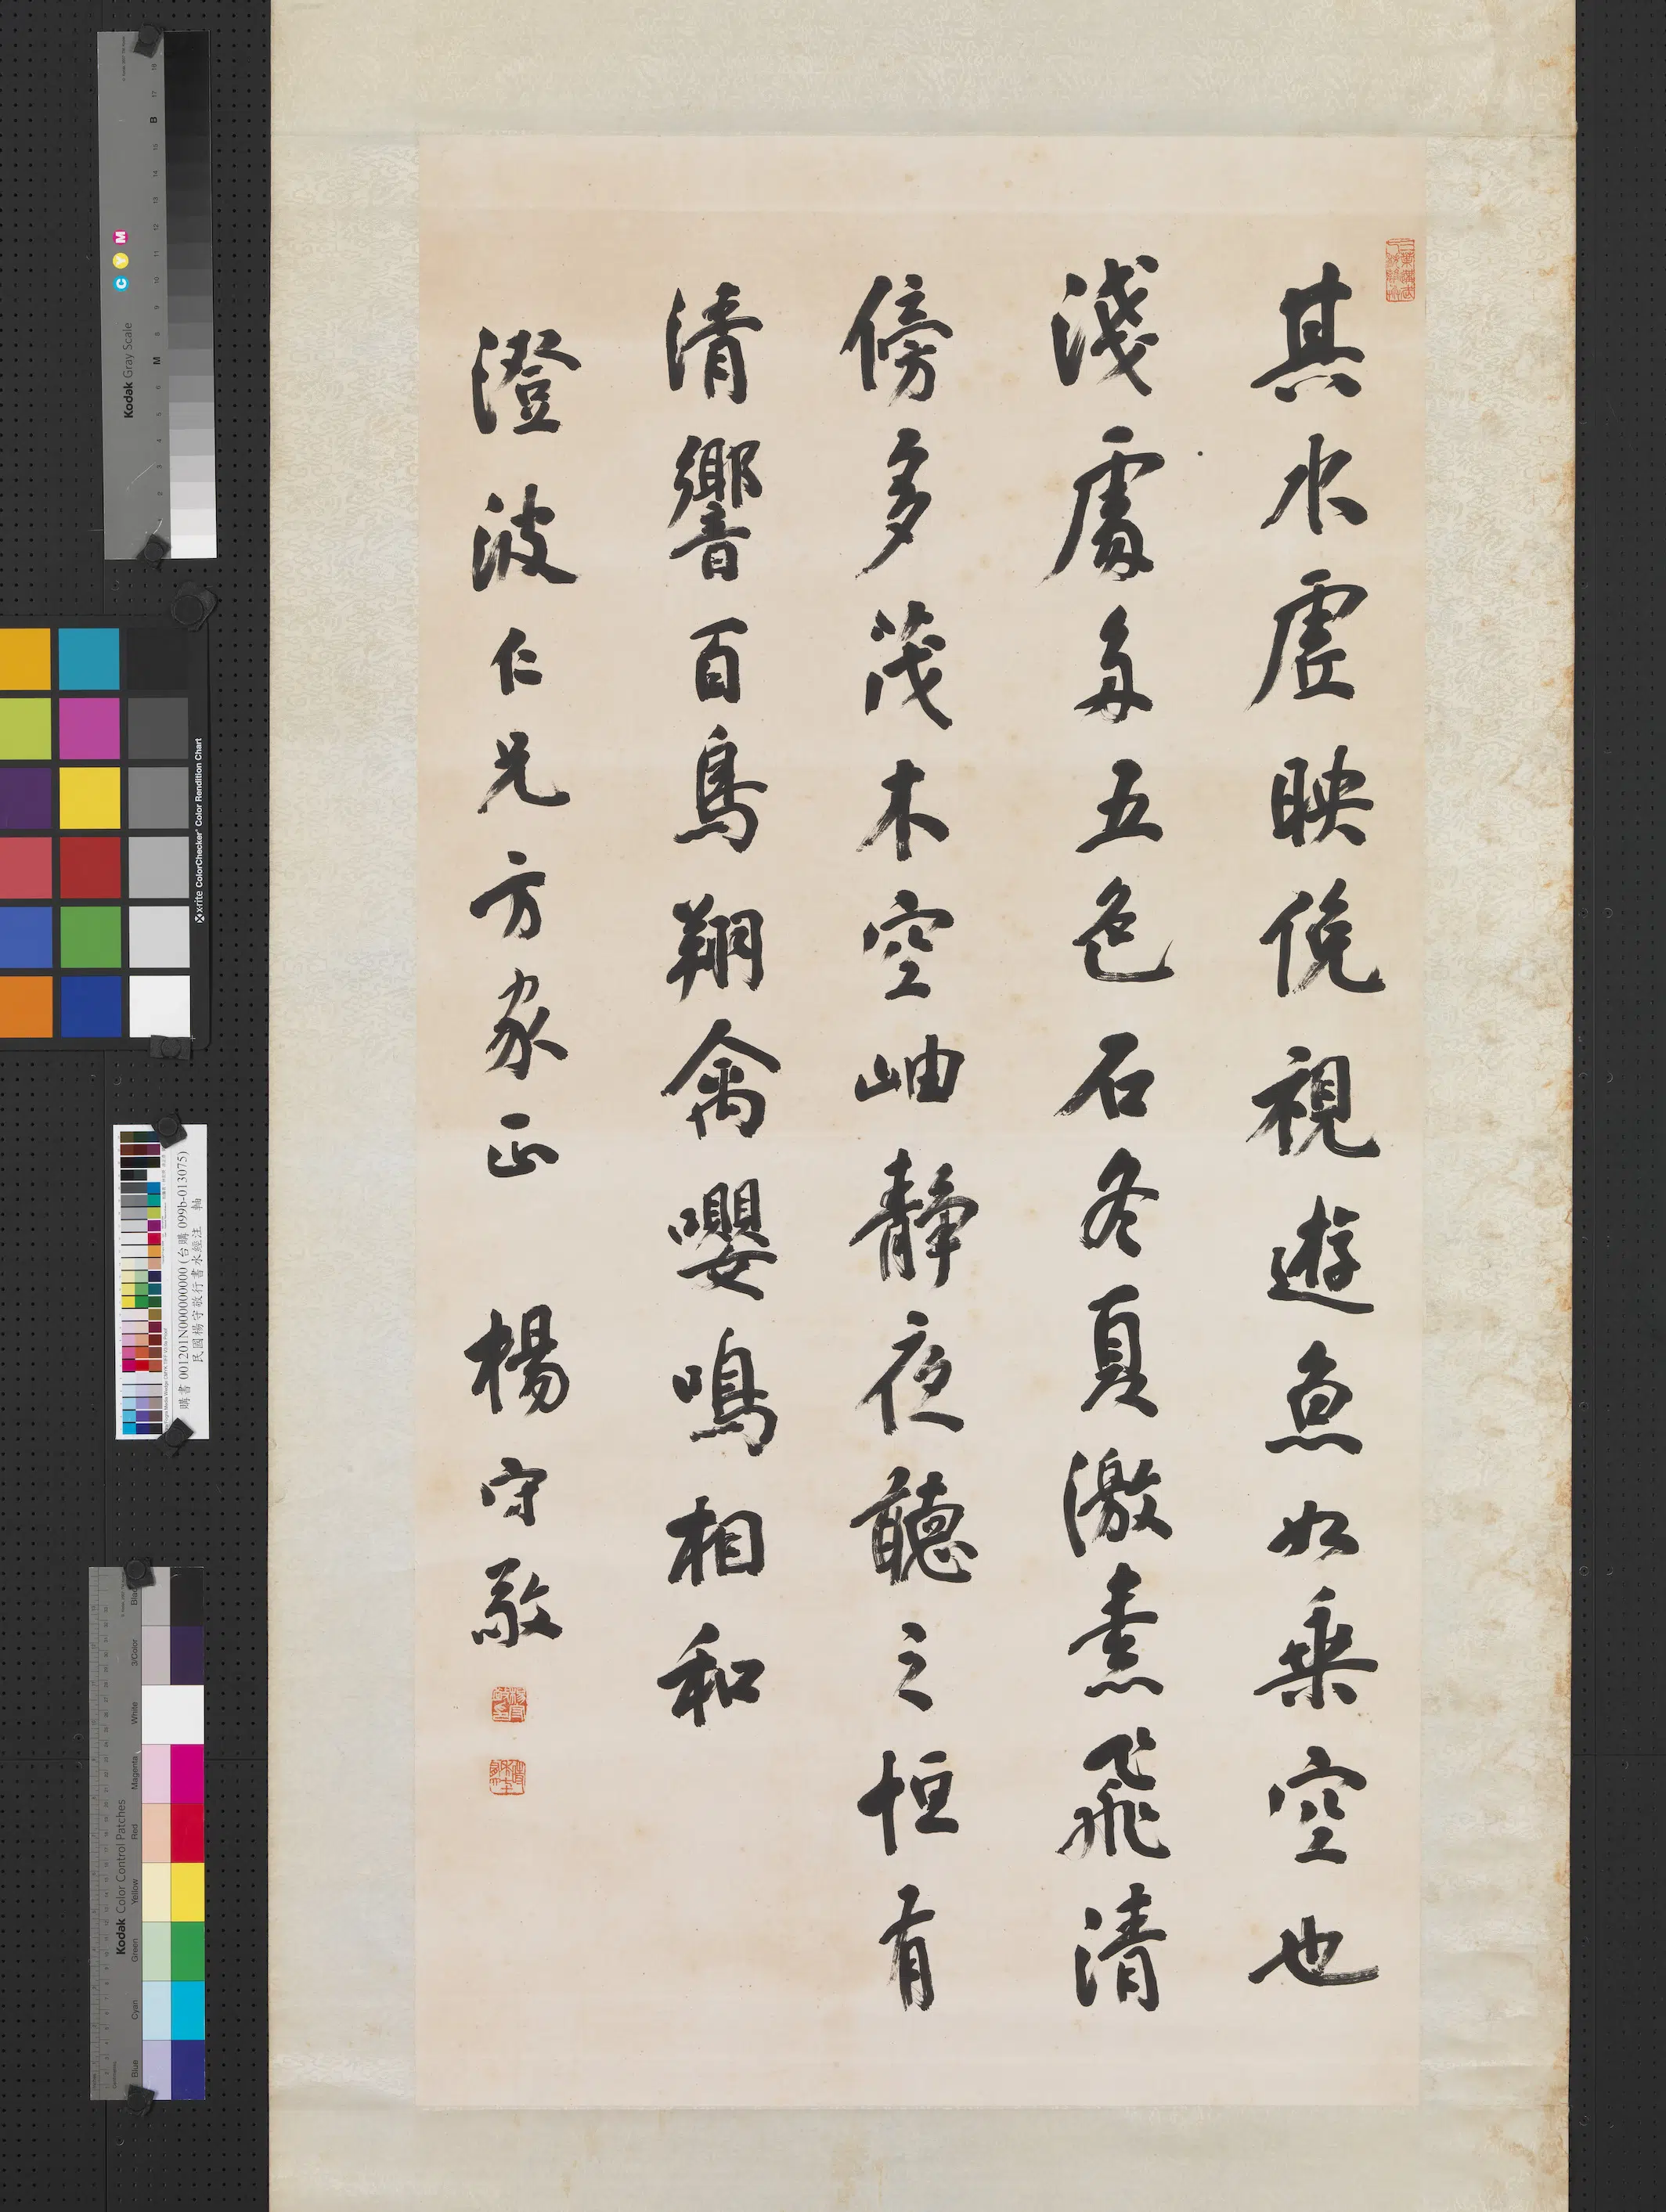 其水虛映俛視遊魚如乘空也
淺處多五色石冬夏激素飛清
傍多茂木空岫靜夜聽之恒有
清響百鳥翔禽嚶鳴相和
澄波仁兄方家正 楊守敬
購書 001201N000000000 (台購 099b-013075)
民國楊守敬行書水經注 軸
Kodak Gray Scale
C Y M
x-rite ColorChecker Color Rendition Chart
Kodak Color Control Patches
Blue Cyan Green Yellow Red Magenta White 3/Color Black